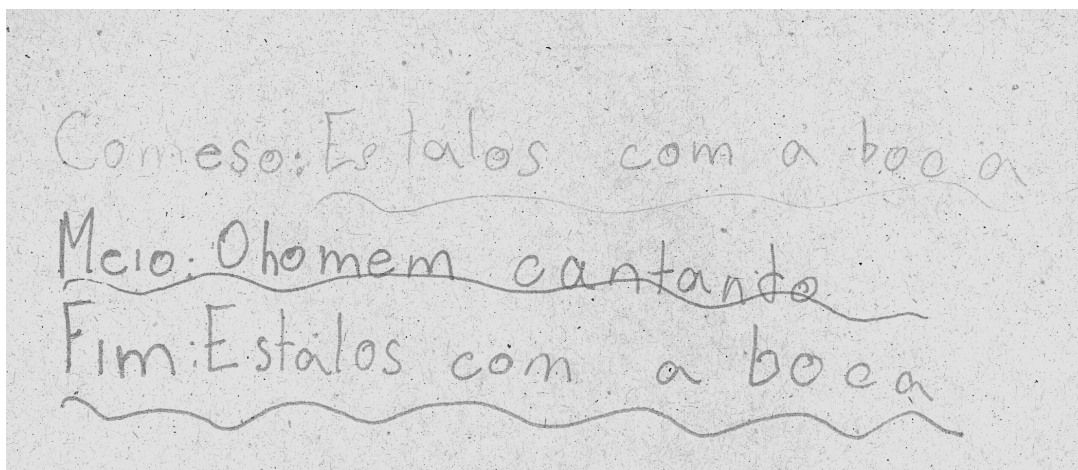 Comeso: Estalos com a boca
Meio: O homem cantando
Fim: Estalos com a boca